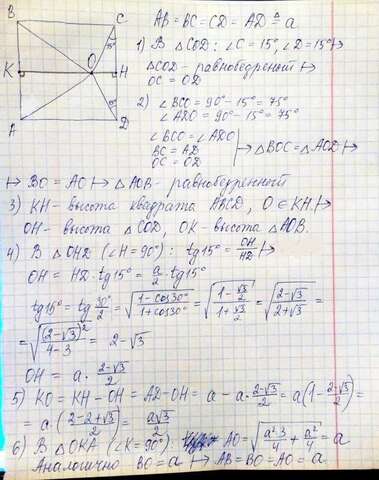 B C
K O H
A D
15°
15°
AB = BC = CD = AD ≅ a
1) В △COD: ∠C = 15°, ∠D = 15° ↦
△COD - равнобедренный ↦
OC = OD
2) ∠BCO = 90° - 15° = 75°
∠ADO = 90° - 15° = 75°
∠BCO = ∠ADO
BC = AD
OC = OD | ↦ △BOC = △AOD ↦
↦ BO = AO ↦ △AOB - равнобедренный
3) KH - высота квадрата ABCD, O ∈ KH. ↦
OH - высота △COD, OK - высота △AOB.
4) В △OHD (∠H = 90°): tg15° = OH/HD ↦
OH = HD · tg15° = a/2 · tg15°
tg15° = tg 30°/2 = √((1 - cos30°)/(1 + cos30°)) = √((1 - √3/2)/(1 + √3/2)) = √((2 - √3)/(2 + √3)) =
= √((2 - √3)²/(4 - 3)) = 2 - √3
OH = a · (2 - √3)/2
5) KO = KH - OH = AD - OH = a - a · (2 - √3)/2 = a(1 - (2 - √3)/2) =
= a · ((2 - 2 + √3)/2) = a√3/2
6) В △OKA (∠K = 90°): AO = √(a²·3/4 + a²/4) = a
Аналогично BO = a ↦ AB = BO = AO = a